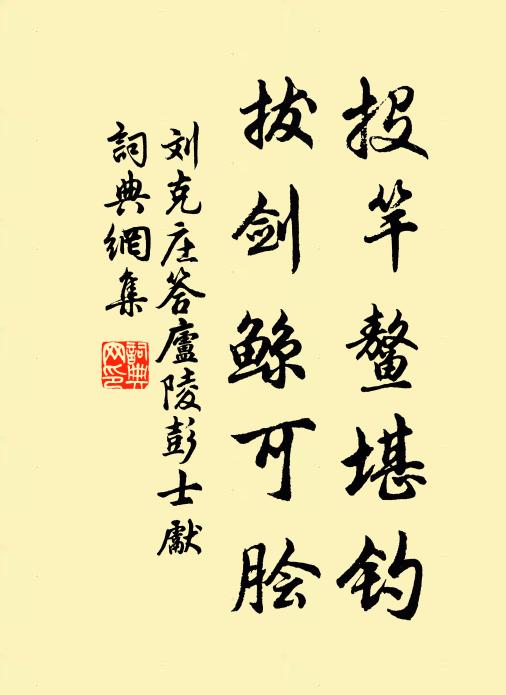 投竿鳌堪钓
拔剑鲸可脍
刘克庄答廬陵彭士獻
詞典網集
詞典網印